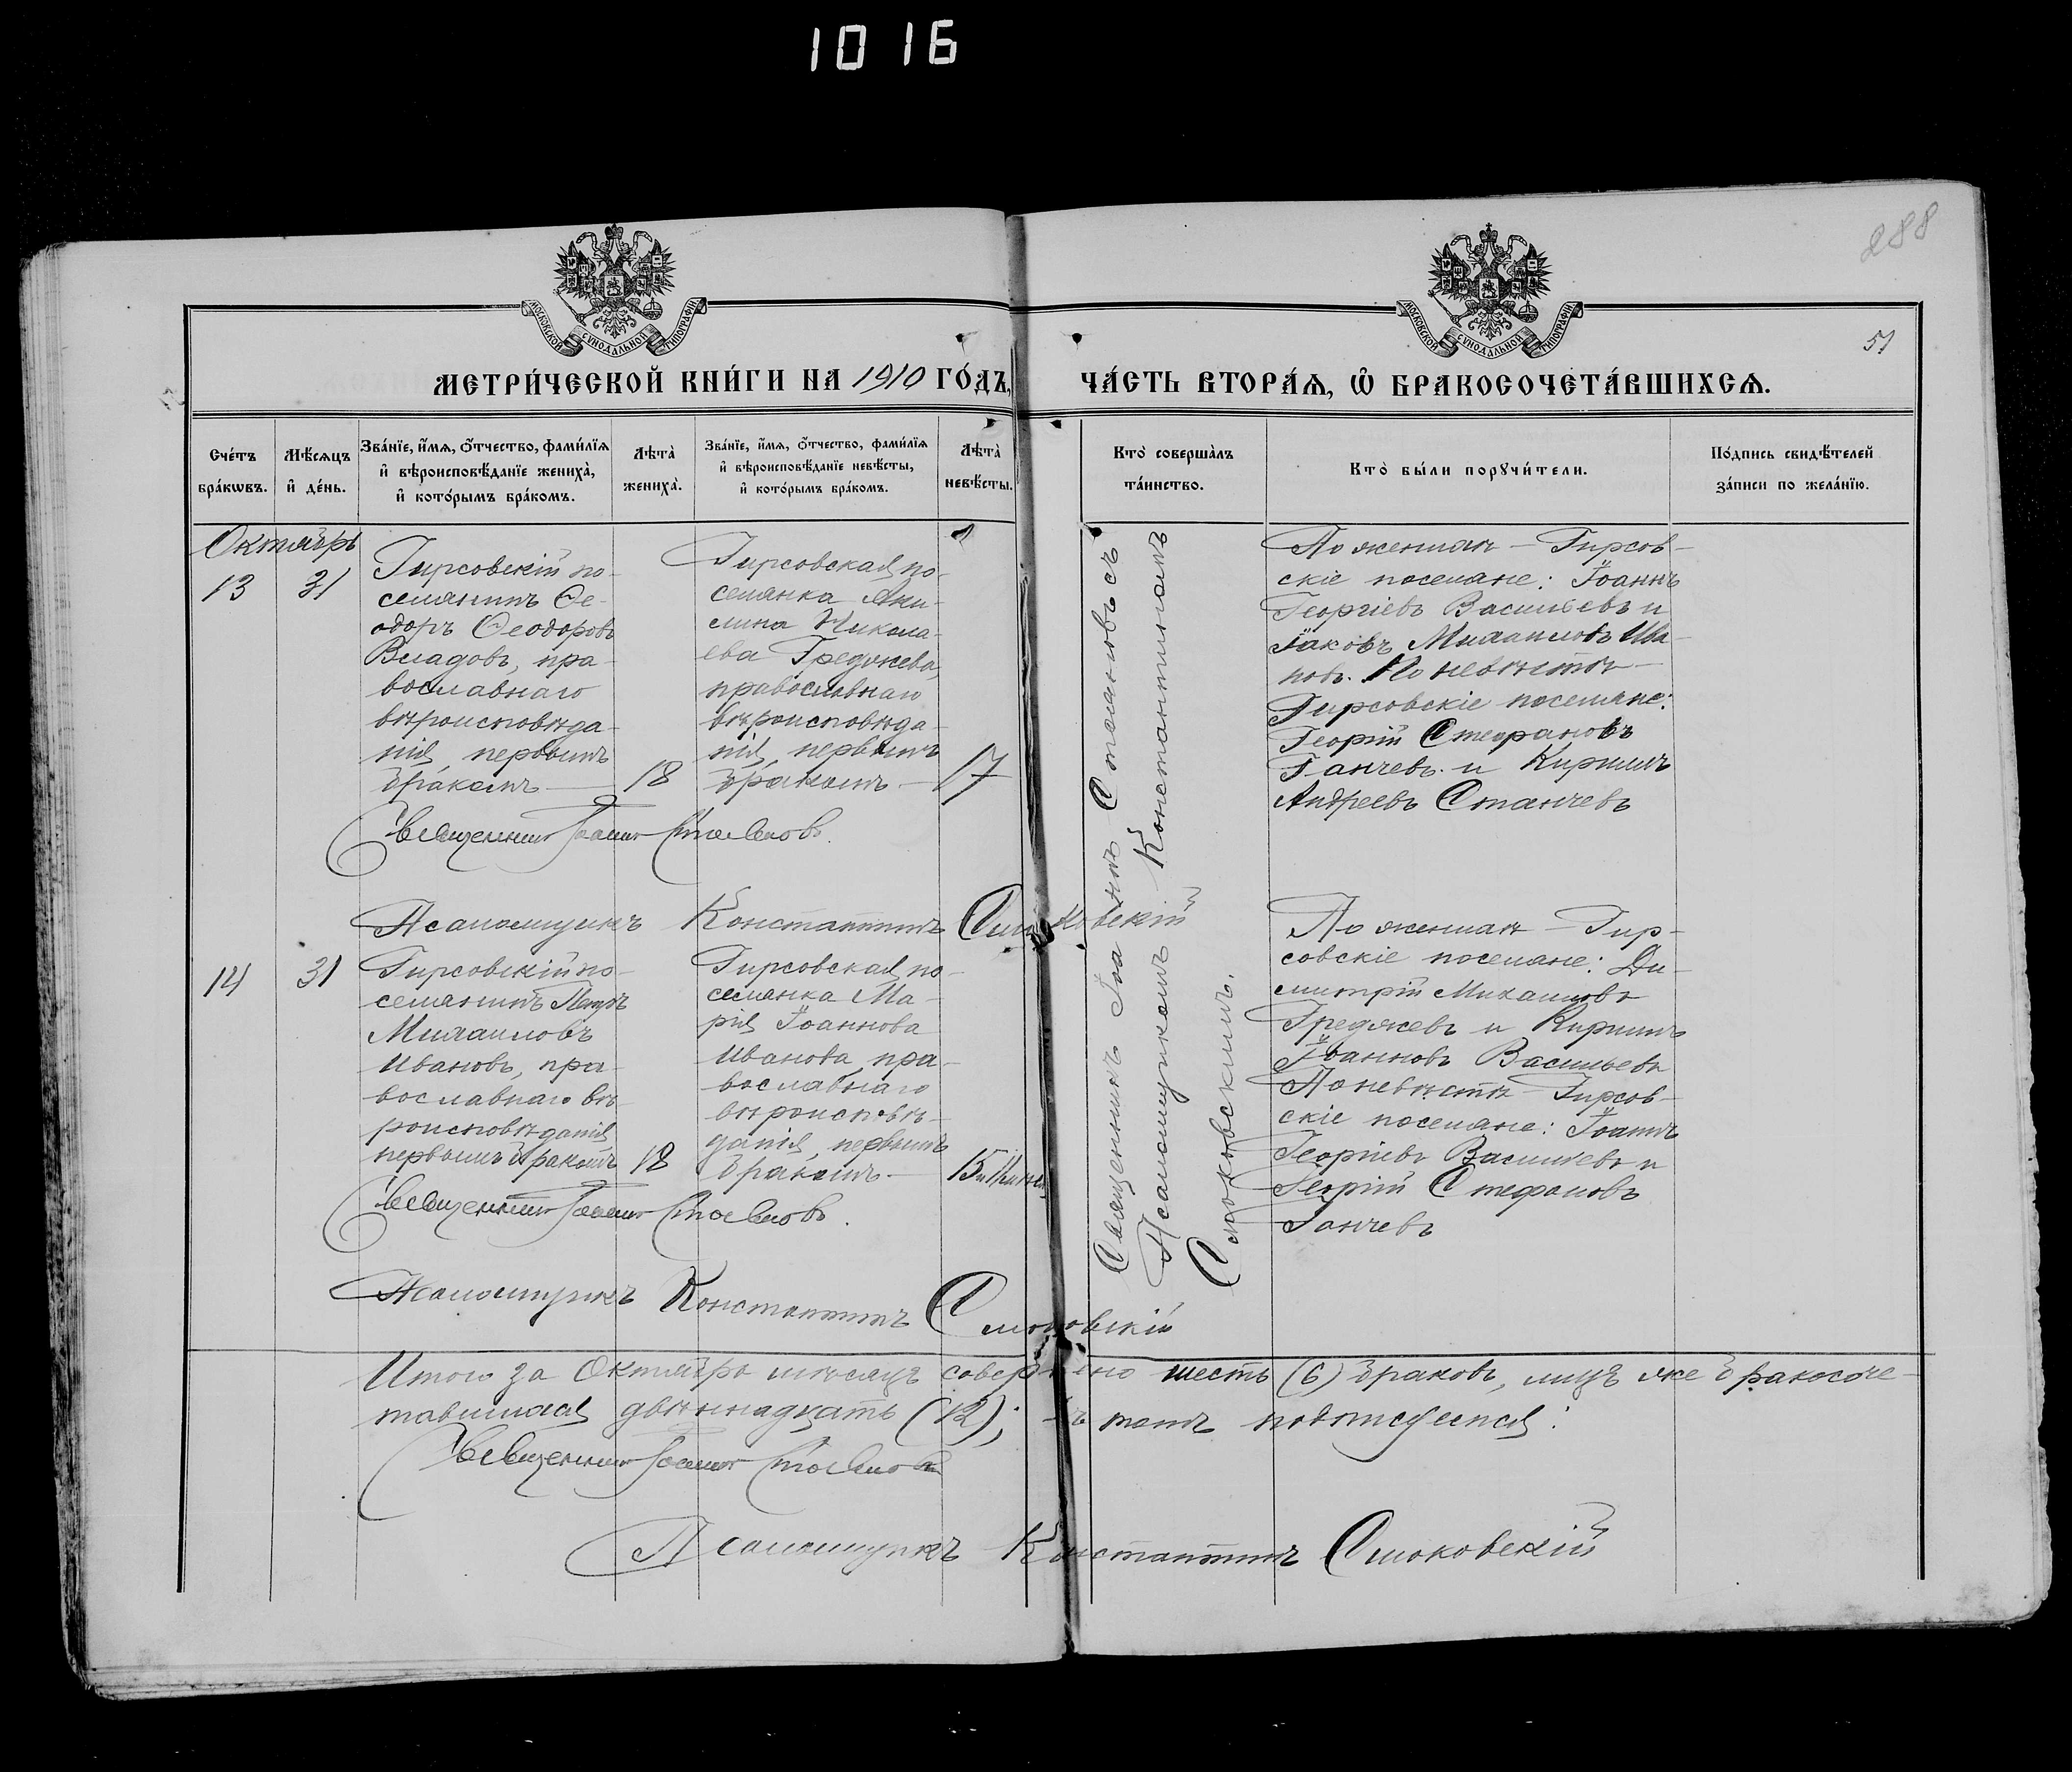 1016
288
МОСКОВСКОЙ СѴНОДАЛЬНОЙ ТИПОГРАФІИ
МОСКОВСКОЙ СѴНОДАЛЬНОЙ ТИПОГРАФІИ
51
МЕТРИ́ЧЕСКОЙ КНИ́ГИ НА 1910 ГО́ДЪ,
ЧА́СТЬ ВТОРА́Ѧ, Ѽ БРАКОСОЧЕТА́ВШИХСѦ.
Сче́тъ
бра́кѡвъ.
Мѣ́сѧцъ
и҆ де́нь.
Зва́нїе, и҆́мѧ, ѻ҆́тчество, фами́лїѧ
и҆ вѣроисповѣ́данїе жениха̀,
и҆ кото́рымъ бра́комъ.
Лѣта̀
жениха̀.
Зва́нїе, и҆́мѧ, ѻ҆́тчество, фами́лїѧ
и҆ вѣроисповѣ́данїе невѣ́сты,
и҆ кото́рымъ бра́комъ.
Лѣта̀
невѣ́сты.
Кто̀ соверша́лъ
та́инство.
Кто̀ бы́ли порꙋчи́тели.
По́дпись свидѣ́телей
за́писи по жела́нїю.
Октябрь
13
31
Гирсовскій по-
селянинъ Ѳе-
одоръ Ѳеодоровъ
Владовъ, пра-
вославнаго
вѣроисповѣда-
нія, первымъ
бракомъ —
18
Гирсовская по-
селянка Аки-
лина Никола-
ева Греджева,
православнаго
вѣроисповѣда-
нія, первымъ
бракомъ —
17
Священникъ Іоаннъ Стояновъ съ
Псаломщикомъ Константиномъ
Смоковскимъ.
По женихѣ — Гирсов-
скіе поселяне: Іоаннъ
Георгіевъ Васильевъ и
Іаковъ Михаиловъ Ива-
новъ. По невѣстѣ —
Гирсовскіе поселяне:
Георгій Стефановъ
Ганчевъ и Кириллъ
Андреевъ Станчевъ
Священникъ Іоаннъ Стояновъ.
Псаломщикъ Константинъ Смоковскій
14
31
Гирсовскій по-
селянинъ Петръ
Михаиловъ
Ивановъ, пра-
вославнаго вѣ-
роисповѣданія
первымъ бракомъ
18
Гирсовская по-
селянка Ма-
рія Іоаннова
Иванова, пра-
вославнаго
вѣроисповѣ-
данія, первымъ
бракомъ —
По женихѣ — Гир-
совскіе поселяне: Ди-
митрій Михаиловъ
Греджевъ и Кириллъ
Іоанновъ Васильевъ
По невѣстѣ — Гирсов-
скіе поселяне: Іоаннъ
Георгіевъ Васильевъ и
Георгій Стефановъ
Ганчевъ
Священникъ Іоаннъ Стояновъ.
Псаломщикъ Константинъ Смоковскій
Итого за Октябрь мѣсяцъ совершено шесть (6) браковъ, лицъ же бракосоче-
тавшихся двѣннадцать (12); въ томъ подписуемся:
Священникъ Іоаннъ Стояновъ
Псаломщикъ Константинъ Смоковскій